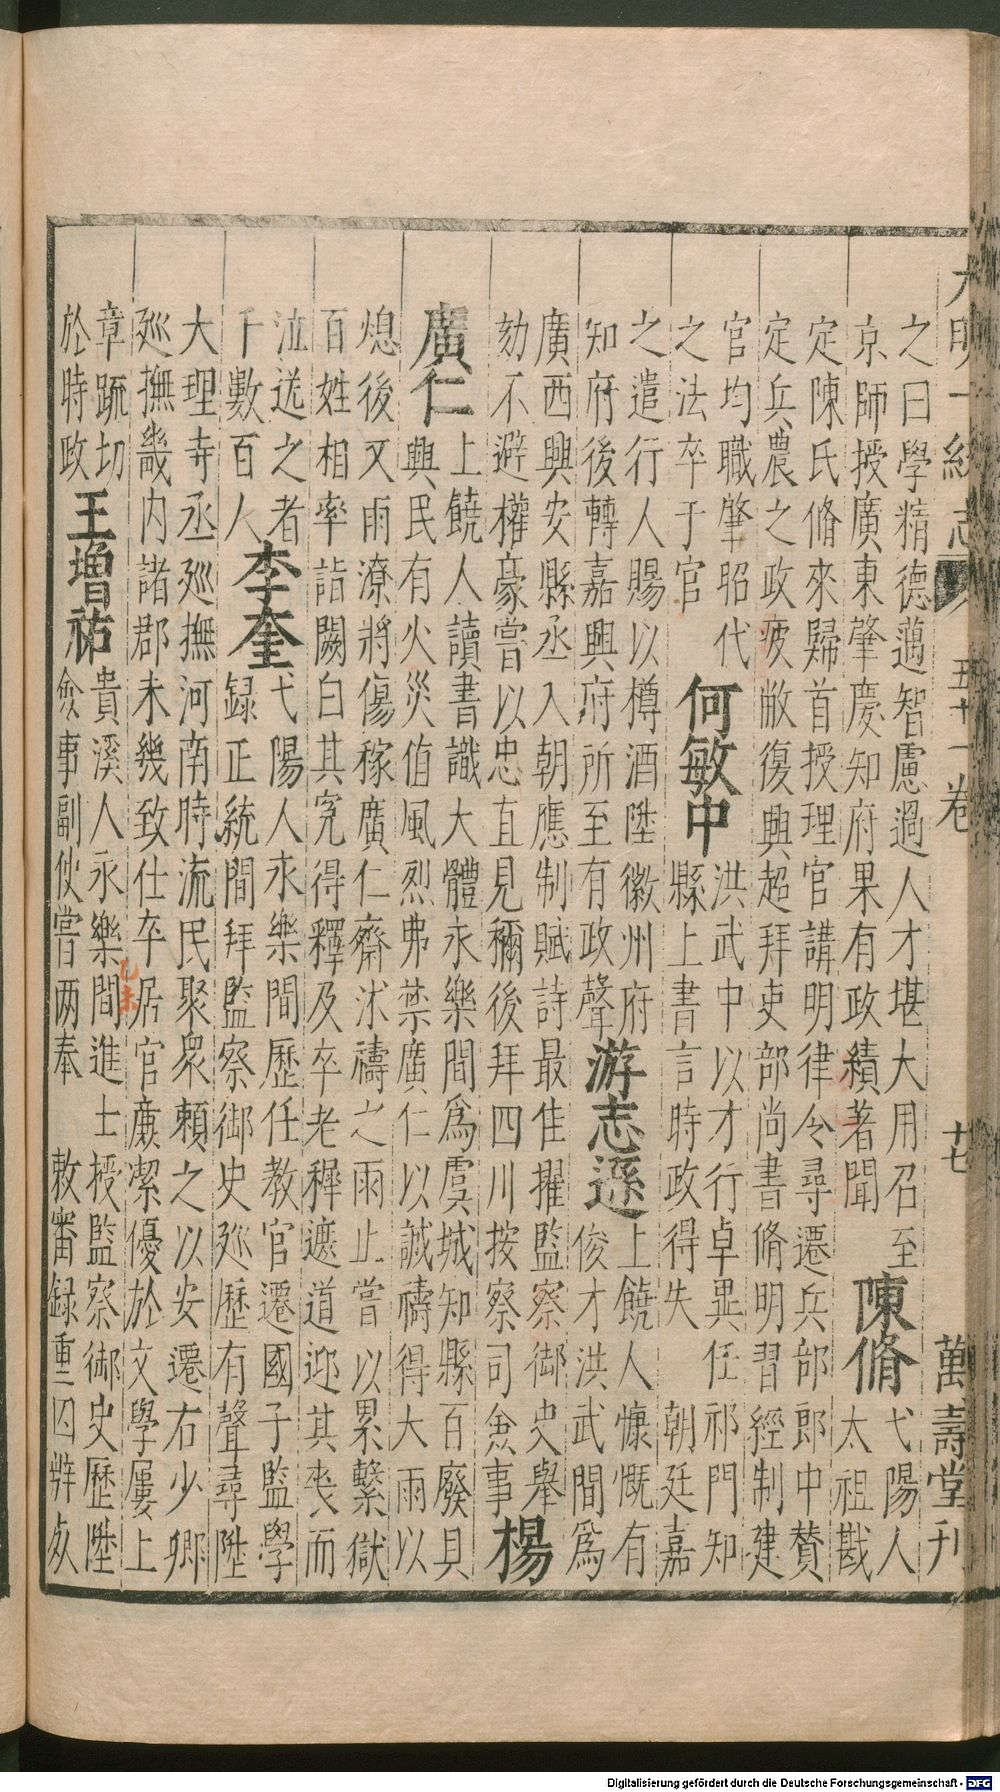 大明一統志 五十一卷 廿七 萬壽堂刊
之曰學精德邁智慮過人才堪大用召至
京師授廣東肇慶知府果有政績著聞
陳脩
弋陽人
太祖戡
定陳氏脩來歸首授理官講明律令尋遷兵部郎中贊
定兵農之政疲敝復興超拜吏部尚書脩明習經制建
官均職肇昭代
之法卒于官
何敏中
洪武中以才行卓異任祁門知
縣上書言時政得失 朝廷嘉
之遣行人賜以樽酒陞徽州府
知府後轉嘉興府所至有政聲
游志遜
上饒人慷慨有
俊才洪武間爲
廣西興安縣丞入朝應制賦詩最佳擢監察御史舉
劾不避權豪嘗以忠直見稱後拜四川按察司僉事
楊
廣仁
上饒人讀書識大體永樂間爲虞城知縣百廢具
興民有火災值風烈弗禁廣仁以誠禱得大雨以
熄後又雨潦將傷稼廣仁齋沐禱之雨止嘗以累繫獄
百姓相率詣闕白其冤得釋及卒老穉遮道迎其喪而
泣送之者
千數百人
李奎
弋陽人永樂間歷任教官遷國子監學
録正統間拜監察御史廵歷有聲尋陞
大理寺丞廵撫河南時流民聚衆賴之以安遷右少卿
廵撫畿内諸郡未幾致仕卒居官廉潔優於文學屢上
章䟽切
於時政
王增祐
貴溪人永樂間進士授監察御史歷陞
僉事副使嘗两奉 敕審録重囚辨䖏
乙未
Digitalisierung gefördert durch die Deutsche Forschungsgemeinschaft - DFG